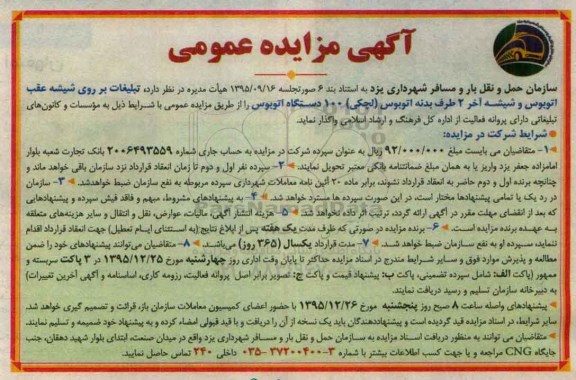 آگهی مزایده عمومی
سازمان حمل و نقل بار و مسافر شهرداری یزد به استناد بند ۶ صورتجلسه ۱۳۹۵/۰۹/۱۶ هیأت مدیره در نظر دارد، تبلیغات بر روی شیشه عقب
اتوبوس و شیشه آخر ۲ طرف بدنه اتوبوس (لچکی) ۱۰۰ دستگاه اتوبوس را از طریق مزایده عمومی با شرایط ذیل به مؤسسات و کانون‌های
تبلیغاتی دارای پروانه فعالیت از اداره کل فرهنگ و ارشاد اسلامی واگذار نماید.
شرایط شرکت در مزایده:
۱- متقاضیان می بایست مبلغ ۹۲/۰۰۰/۰۰۰ ریال به عنوان سپرده شرکت در مزایده به حساب جاری شماره ۲۰۰۶۴۹۳۵۵۹ بانک تجارت شعبه بلوار
امامزاده جعفر یزد واریز یا به همان مبلغ ضمانتنامه بانکی معتبر تحویل نمایند. ۲- سپرده نفر اول و دوم تا زمان انعقاد قرارداد نزد سازمان باقی خواهد ماند و
چنانچه برنده اول و دوم حاضر به انعقاد قرارداد نشوند، برابر ماده ۳۰ آئین نامه معاملات شهرداری سپرده مربوطه به نفع سازمان ضبط خواهدشد. ۳- سازمان
در رد یک یا تمامی پیشنهادها مختار است، در این صورت سپرده ها مسترد خواهد شد. ۴- به پیشنهادهای مشروط، مبهم و فاقد فیش سپرده و پیشنهادهایی
که بعد از انقضای مهلت مقرر در آگهی ارائه گردد، ترتیب اثر داده نخواهد شد. ۵- هزینه انتشار آگهی، مالیات، عوارض، نقل و انتقال و سایر هزینه‌های متعلقه
به عهده برنده مزایده است. ۶- برنده مزایده در صورتی که ظرف مدت یک هفته پس از ابلاغ نتایج (به استثنای ایام تعطیل) جهت انعقاد قرارداد اقدام
ننماید، سپرده او به نفع سازمان ضبط خواهد شد. ۷- مدت قرارداد یکسال (۳۶۵ روز) می‌باشد. ۸- متقاضیان می‌توانند پیشنهادهای خود را ضمن
مطالعه و پذیرش موارد فوق و سایر شرایط مندرج در اسناد مزایده حداکثر تا پایان وقت اداری روز چهارشنبه مورخ ۱۳۹۵/۱۲/۲۵ در ۳ پاکت سربسته و
ممهور (پاکت الف: شامل سپرده تضمینی، پاکت ب: پیشنهاد قیمت و پاکت ج: تصویر برابر اصل پروانه فعالیت، رزومه کاری، اساسنامه و آگهی آخرین تغییرات)
به دبیرخانه سازمان تسلیم و رسید دریافت نمایند.
پیشنهادهای واصله ساعت ۸ صبح روز پنجشنبه مورخ ۱۳۹۵/۱۲/۲۶ با حضور اعضای کمیسیون معاملات سازمان باز، قرائت و تصمیم گیری خواهد شد.
سایر شرایط، در اسناد مزایده قید گردیده است و پیشنهاددهندگان باید یک نسخه از آن را دریافت و با قید قبولی امضاء کرده و به پیشنهاد خود ضمیمه و تسلیم نمایند.
متقاضیان می توانند به منظور دریافت اسناد مزایده به سازمان حمل و نقل بار و مسافر شهرداری یزد واقع در میدان صنعت، ابتدای بلوار شهید دهقان، جنب
جایگاه CNG مراجعه و یا جهت کسب اطلاعات بیشتر با شماره ۳-۳۷۲۰۰۴۰۰-۰۳۵ داخلی ۲۴۰ تماس حاصل نمایید.